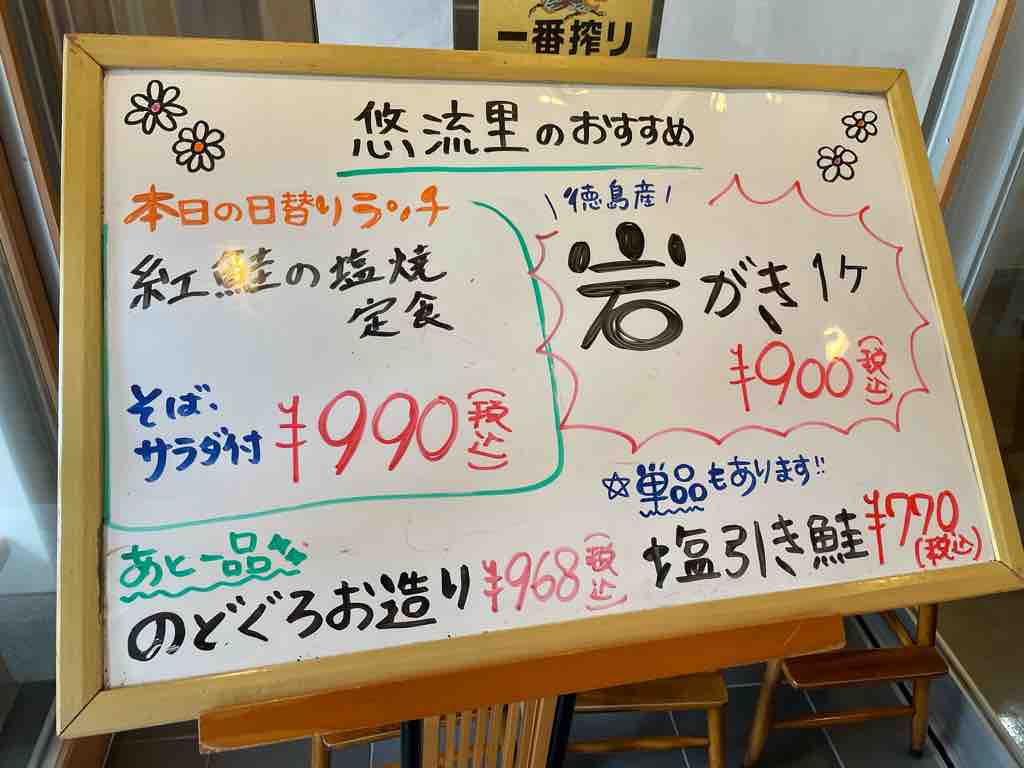 一番搾り
悠流里のおすすめ
本日の日替りランチ
紅鮭の塩焼
定食
そば、
サラダ付
¥990(税込)
\徳島産/
岩がき1ヶ
¥900(税込)
☆単品もあります!!
あと一品
のどぐろお造り ¥968(税込)
塩引き鮭 ¥770(税込)